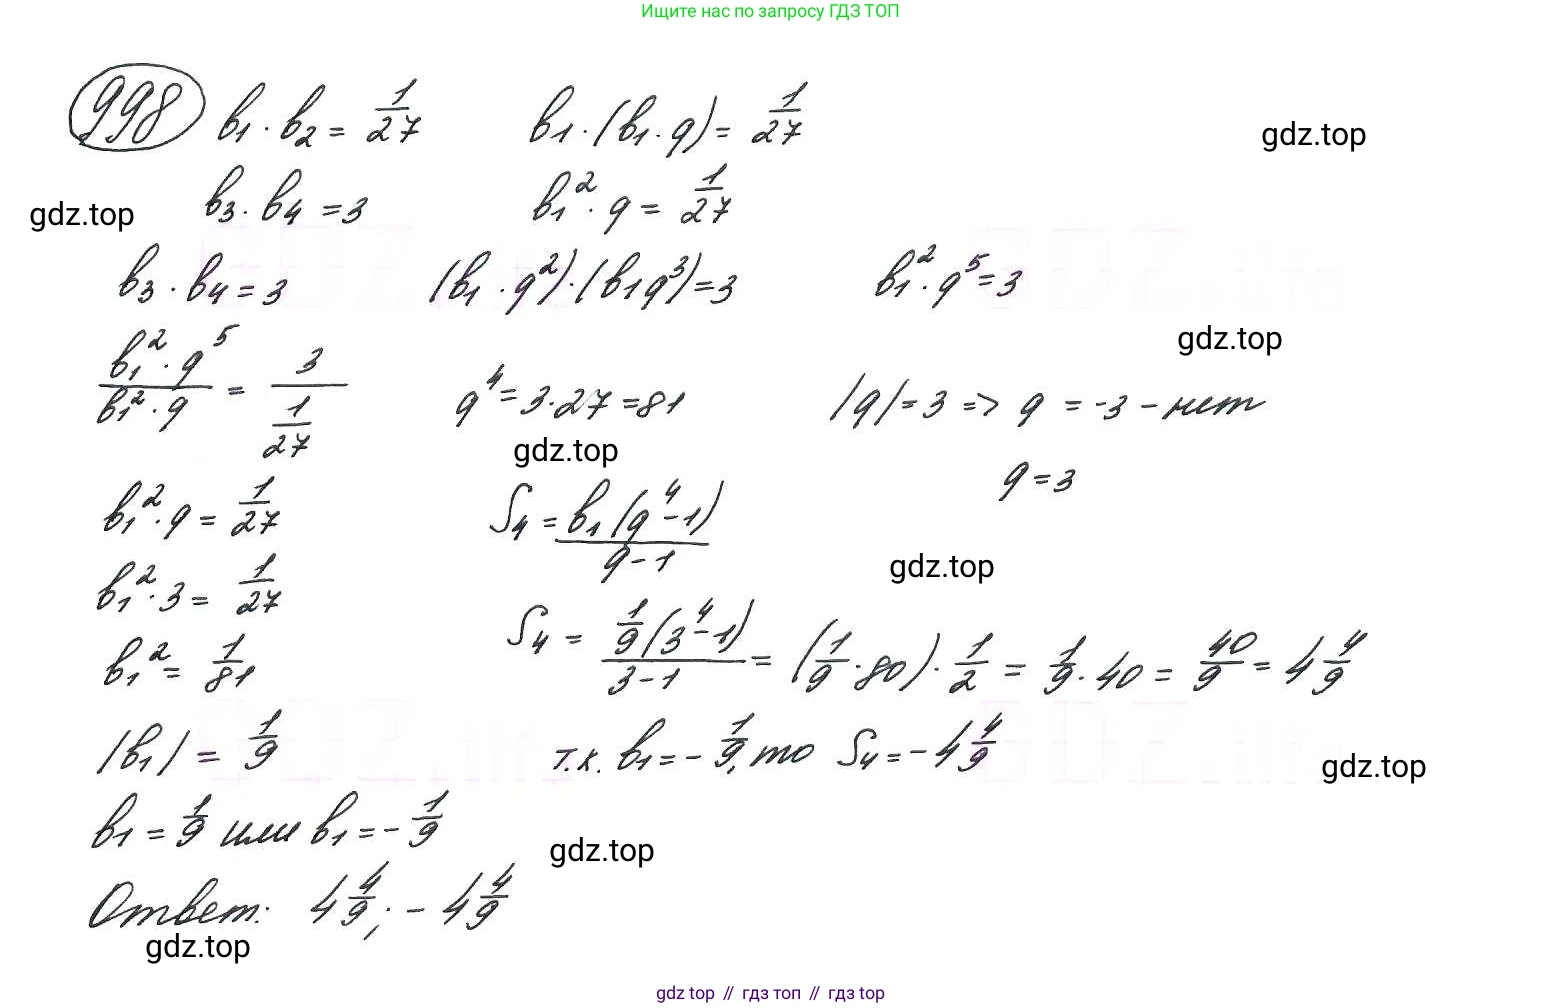 Ищите нас по запросу ГДЗ ТОП
998 b₁ · b₂ = 1/27 b₁ · (b₁ · q) = 1/27
gdz.top
b₃ · b₄ = 3 b₁² · q = 1/27
gdz.top
b₃ · b₄ = 3 (b₁ · q²) · (b₁q³) = 3 b₁² · q⁵ = 3
gdz.top
(b₁² · q⁵)/(b₁² · q) = 3/(1/27) q⁴ = 3 · 27 = 81 |q| = 3 => q = -3 - нет
gdz.top
q = 3
b₁² · q = 1/27 S₄ = b₁(q⁴ - 1)/(q - 1)
gdz.top
b₁² · 3 = 1/27
b₁² = 1/81 S₄ = (1/9(3⁴ - 1))/(3 - 1) = (1/9 · 80) · 1/2 = 1/9 · 40 = 40/9 = 4 4/9
|b₁| = 1/9 т.к. b₁ = - 1/9, то S₄ = - 4 4/9
gdz.top
b₁ = 1/9 или b₁ = - 1/9
gdz.top
Ответ: 4 4/9; - 4 4/9
gdz.top
gdz top // гдз топ // gdz top